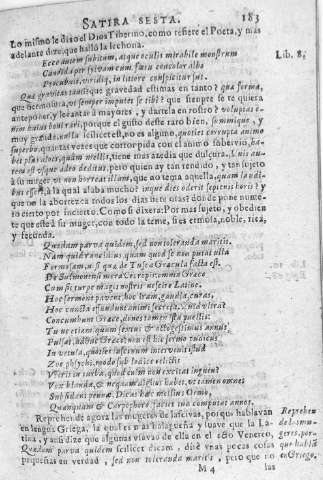 SATIRA SESTA. 183
Lo mismo le dixo el Dios Tibetino, como refiere el Poeta, y mas
adelante dize, que halló la lechona.
Ecce autem subitum, atque oculis mirabile monstrum
Lib. 8.
Candida per sylvam cum fœtu concolor albo
Procubuit, viridiq; in littore conspicitur sus.
Quæ gravitas tanti? que gravedad estimas en tanto? quæ forma,
que hermosura, vt semper imputet se tibi? que siempre se te quiera
anteponer, y levantar à mayores, y dartela en rostro?
nim huius boni rari, porque el gusto deste raro bien, summique, y
muy grande, nulla scilicet est, no es alguno, quoties corrupta animo
superbo, quantas vezes que corrompida con el animo sobervio, ha-
bet plus aloes, quàm mellis, tiene mas azedia que dulçura. Quis au-
tem est usque adeo deditus, pero quien ay tan rendido, y tan sujeto
à su muger, vt non horreat illam, que no tema aquella, quam laudi-
bus effert, à la qual alaba mucho? inque dies oderit septenis horis? y
que no la aborrezca todos los dias siete oras? donde pone nume-
ro cierto por incierto. Como si dixera: Por mas sujeto, y obedien-
te que esté à su muger, con todo la teme, si es ermosa, noble, rica,
y fecunda.
Quædam parva quidem, sed non toleranda maritis.
Nam quid rancidius quam quod se non putat ulla
Formosam, nisi quæ de Tusca Græcula facta est.
De Sulmonensi mera Cecropis: omnia Græce
Cum sit turpe magis nostris nescire Latine.
Hoc sermone pavent, hoc iram, gaudia, curas,
Hoc cuncta effundunt animi secreta. quid ultra?
Concumbunt Græce, dones tamen ista puellis:
Tu ne etiam quam sextus & octogesimus annus
Pulsat, adhuc Græce? non est hic sermo pudicus
In vetula, quoties lascivum intervenit istud
Zoe psychi, modo sub lodice relictis
Vteris in turba. quod enim non excitet inguen?
Vox blanda, & nequam digitos habet. vt tamen omnes
Subsidant pennæ. Dicas hæc mollius Æmo,
Quanquam & Carpophoro, facies tua computat annos.
Reprehende agora las mugeres lascivas, porque hablavan
Reprehen
en lengua Griega, la qual es mas halagueña y suave que la La-
de las mu-
tina, y assi dize que algunas usavan de ella en el acto Venereo,
geres, por-
Quædam parva quidem scilicet dicam, diré unas pocas cosas
que hablā
pequeñas en verdad, sed non toleranda maritis, pero que no
en Griego.
M 4
las